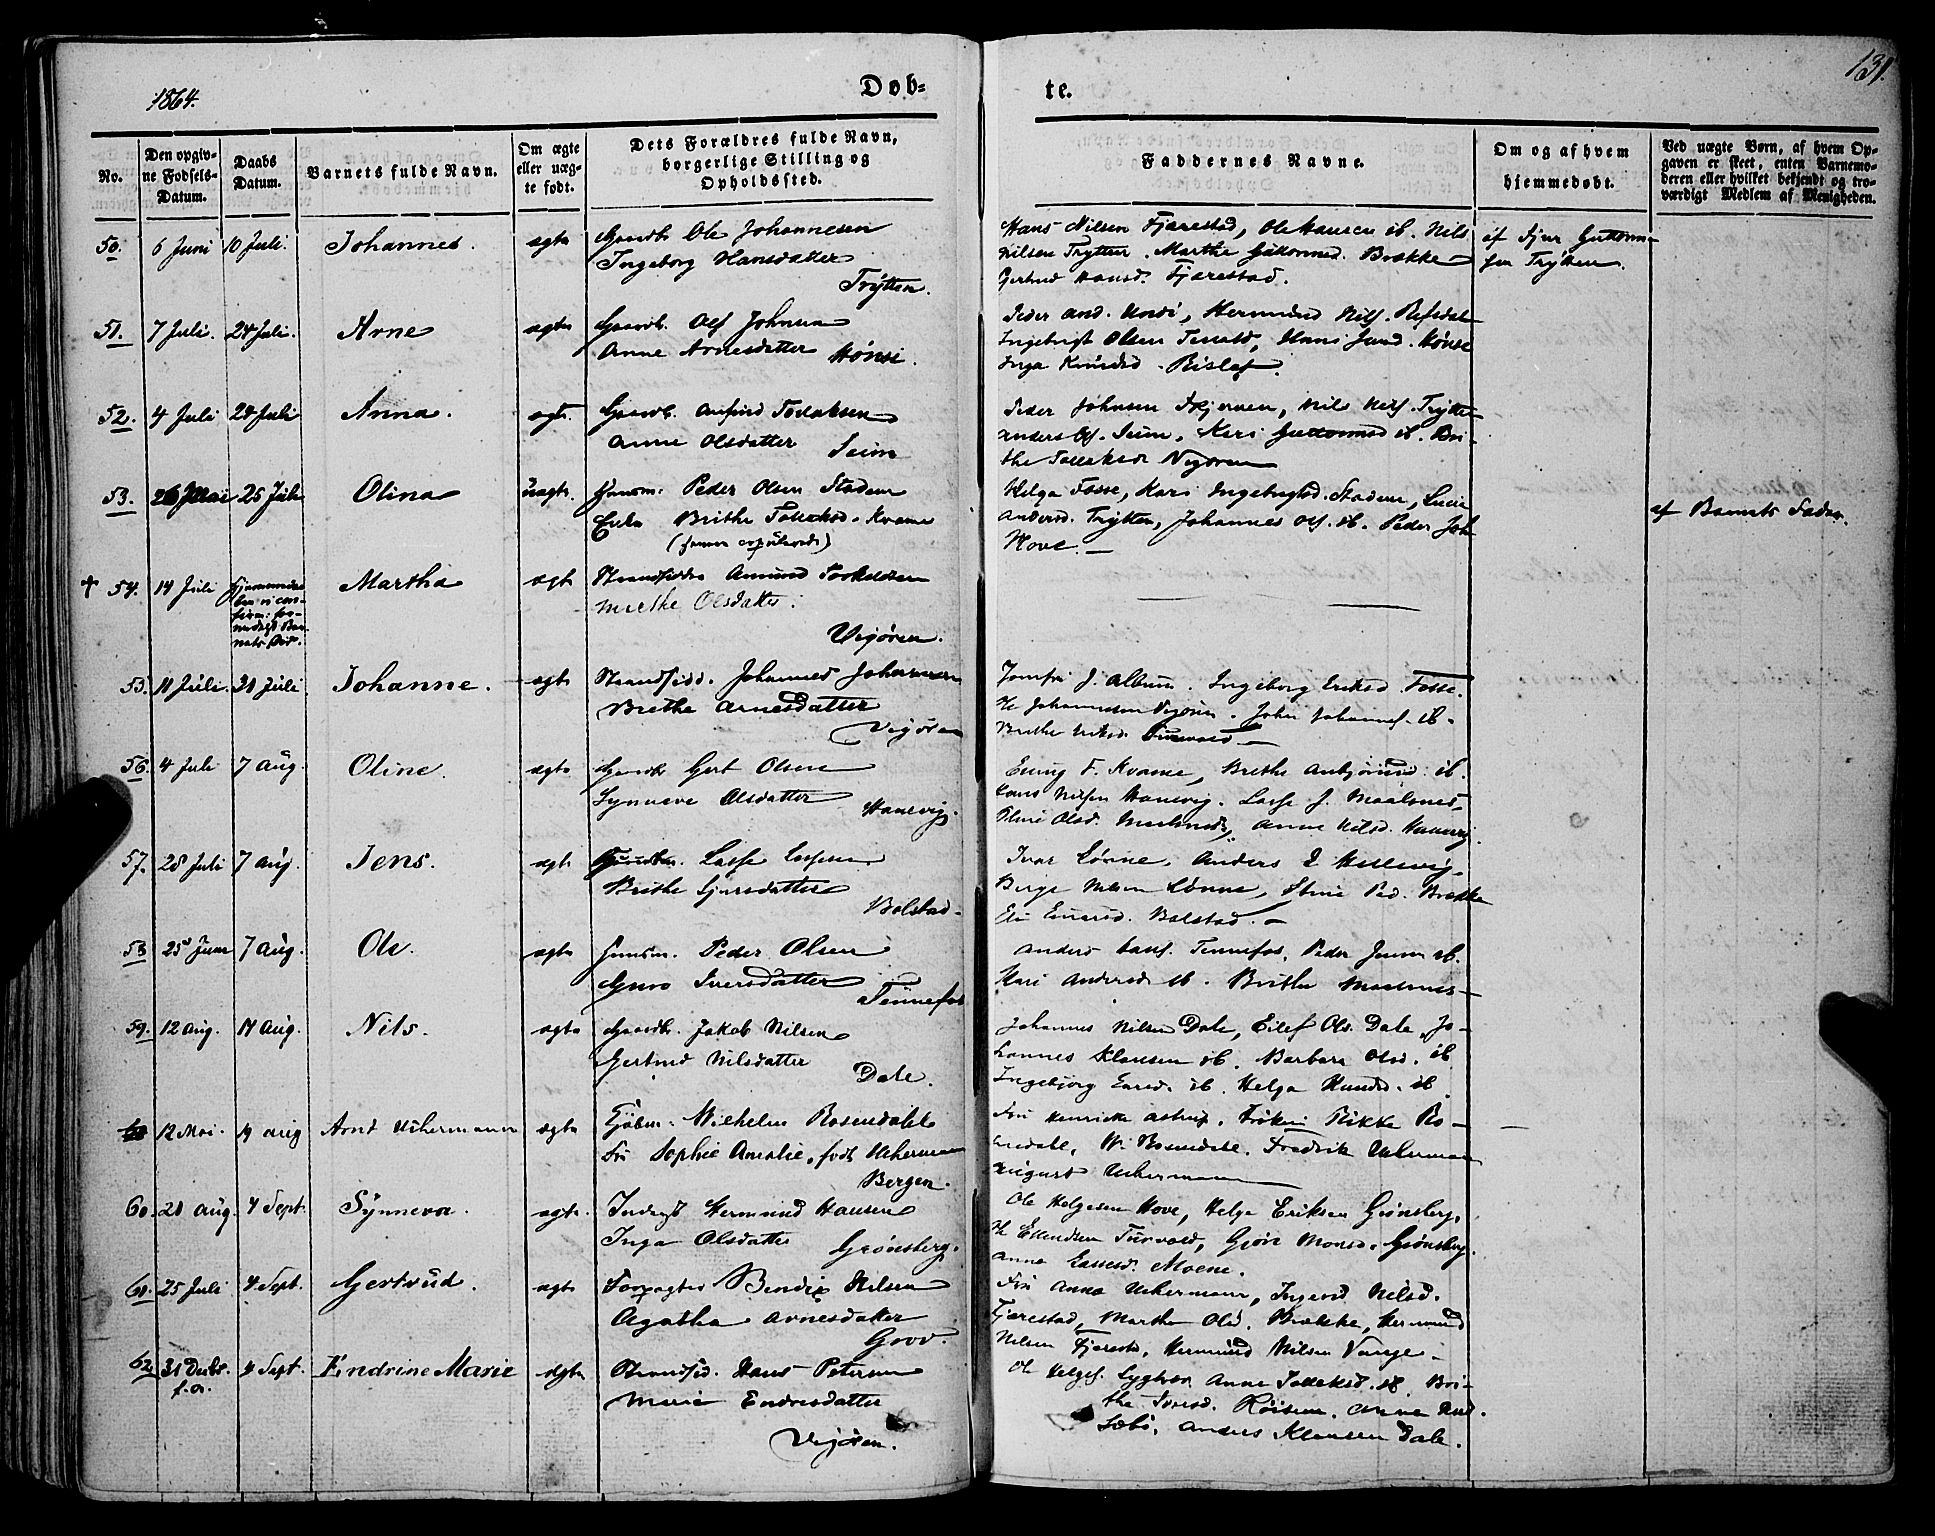 1864.
Døb-
te.
131.
No.
Den opgiv-
ne Fødsels-
Datum.
Daabs
Datum.
Barnets fulde Navn.
Om ægte
eller uæg-
te født.
Dets Forældres fulde Navn,
borgerlige Stilling og
Opholdssted.
Faddernes Navne.
Om og af hvem
hjemmedøbt.
Ved uægte Børn, af hvem Op-
gaven er skeet, enten Barnemo-
deren eller hvilket bekjendt og tro-
værdigt Medlem af Menigheden.
50. 6 Juni 10 Juli. Johannes. ægte Gaardb. Ole Johannesen
Ingeborg Hansdatter
Trytten.
Hans Nilsen Fjærestad, Ole Hansen ib. Nils
Nilsen Trytten. Marthe Guttormsd. Brække
Gertrud Hansd. Fjærestad.
af Sjur Guttorm-
sen Trytten.
51. 7 Juli. 24 Juli. Arne ægte Gaardb. Olf Johnsen
Anne Arnesdatter Hønsi.
Peder And. Undi, Hermund Nilf. Refsdal
Ingebrigt Olsen Tenold, Hans Hønse
Inga Knudsd. Rislef.
52. 4 Juli 24 Juli Anna. ægt. Gaardb. Anfind Tollaksen
Anne Olsdatter Seim
Peder Johnsen Skjerven, Nils Nilf. Trytte
Anders Olf. Seim, Kari Guttormsd ib. Bri-
the Tollaksd Vigøren
53. 26 Mai 25 Juli Olina uægte. Huusm. Peder Olsen Stadem
Enke Brithe Tollaksd. Kvame
Helga Fosse, Kari Ingebrigtsd. Stadem, Lucie
Andersd. Trytten, Johannes Olf. ib. Peder Joh
Hove.
af Barnets Fader.
54. 14 Juli Martha ægte Strandsidder Amund Torkeldsen
Merthe Olsdatter.
Vigøren.
55. 11 Juli. 31 Juli Johanne. ægte Strandsidd. Johannes Johannesen
Brithe Arnesdatter
Vigøren
Jomfru J. Album. Ingeborg Eriksd Fosse.
Johannesen Vigøren. Johs Johannes. ib.
Brithe Turvold
56. 4 Juli 7 Aug. Oline. ægte Gaardb Gert Olsen
Synneve Olsdatter Hanevig.
F. Kvame, Brithe Anbjørnsd. ib.
Lars Nilsen Hanevig. Lasse J. Maalsnes,
Olsd. Maalsnes, Anne Nilsd. Hanevig
57. 28 Juli 7 Aug. Jens. ægte Lasse Lassesen
Brithe Sjursdatter
Bolstad
Ivar Lønne, Anders Hellevig
Børge Nilsen Lønne, Stine Ped. Brække
Eli Einarsd. Bolstad.
58 25 Juni 7 Aug. Ole. ægte Huusm. Peder Olsen
Guro Iversdatter Tennefos
Anders Tennefos, Peder ib.
Kari Andersd ib. Brithe Maalsnes
59. 12 Aug. 14 Aug. Nils. ægte Gaardb. Jakob Nilsen
Gertrud Nilsdatter
Dale.
Johannes Nilsen Dale, Eilef Ols. Dale, Jo-
hannes Klausen ib. Barbara Olsd. ib
Ingebjørg ib. Helga Knudsd. ib.
12 Mai. 14 Aug Arnt Uchermann ægte Kjøbm. Wilhelm Rosendahl
Fru Sophie Amalie, født Uchermann
Bergen.
Fru Henrikke Astrup, Frøken Rikke Ro-
sendahl, W. Rosendahl. Fredrik Uchermann
August Uchermann
60. 21 Aug. 4 Sept. Synneva. ægte. Inderst Hermund Hansen
Inga Olsdatter Grønsberg.
Ole Helgesen Hove, Helge Eriksen Grønsberg,
Turvold, Gjøri Monsd. Grønsberg.
Anna Lassesd. Moene.
61. 25 Juli 4 Sept. Gertrud. ægte Forpagter Bendix Nilsen
Agatha Arnesdatter
Grov.
Fru Anna Uchermann, Ingerid Nilsd.
Fjærestad, Marthe Olsd. Brække, Hermund
Nilsen Fjærestad, Hermund Nilsen Vange
62. 31 Decbr.
f. A.
4 Sept. Endrine Marie ægte Strandsid. Hans Petersen
Marie Endresdatter
Vigøren.
Ole Helges. Lyghren Anne Tollaksd. ib. Bri-
the Iversd. Røisum. Anne
Sæbø. Anders Klausen Dale.